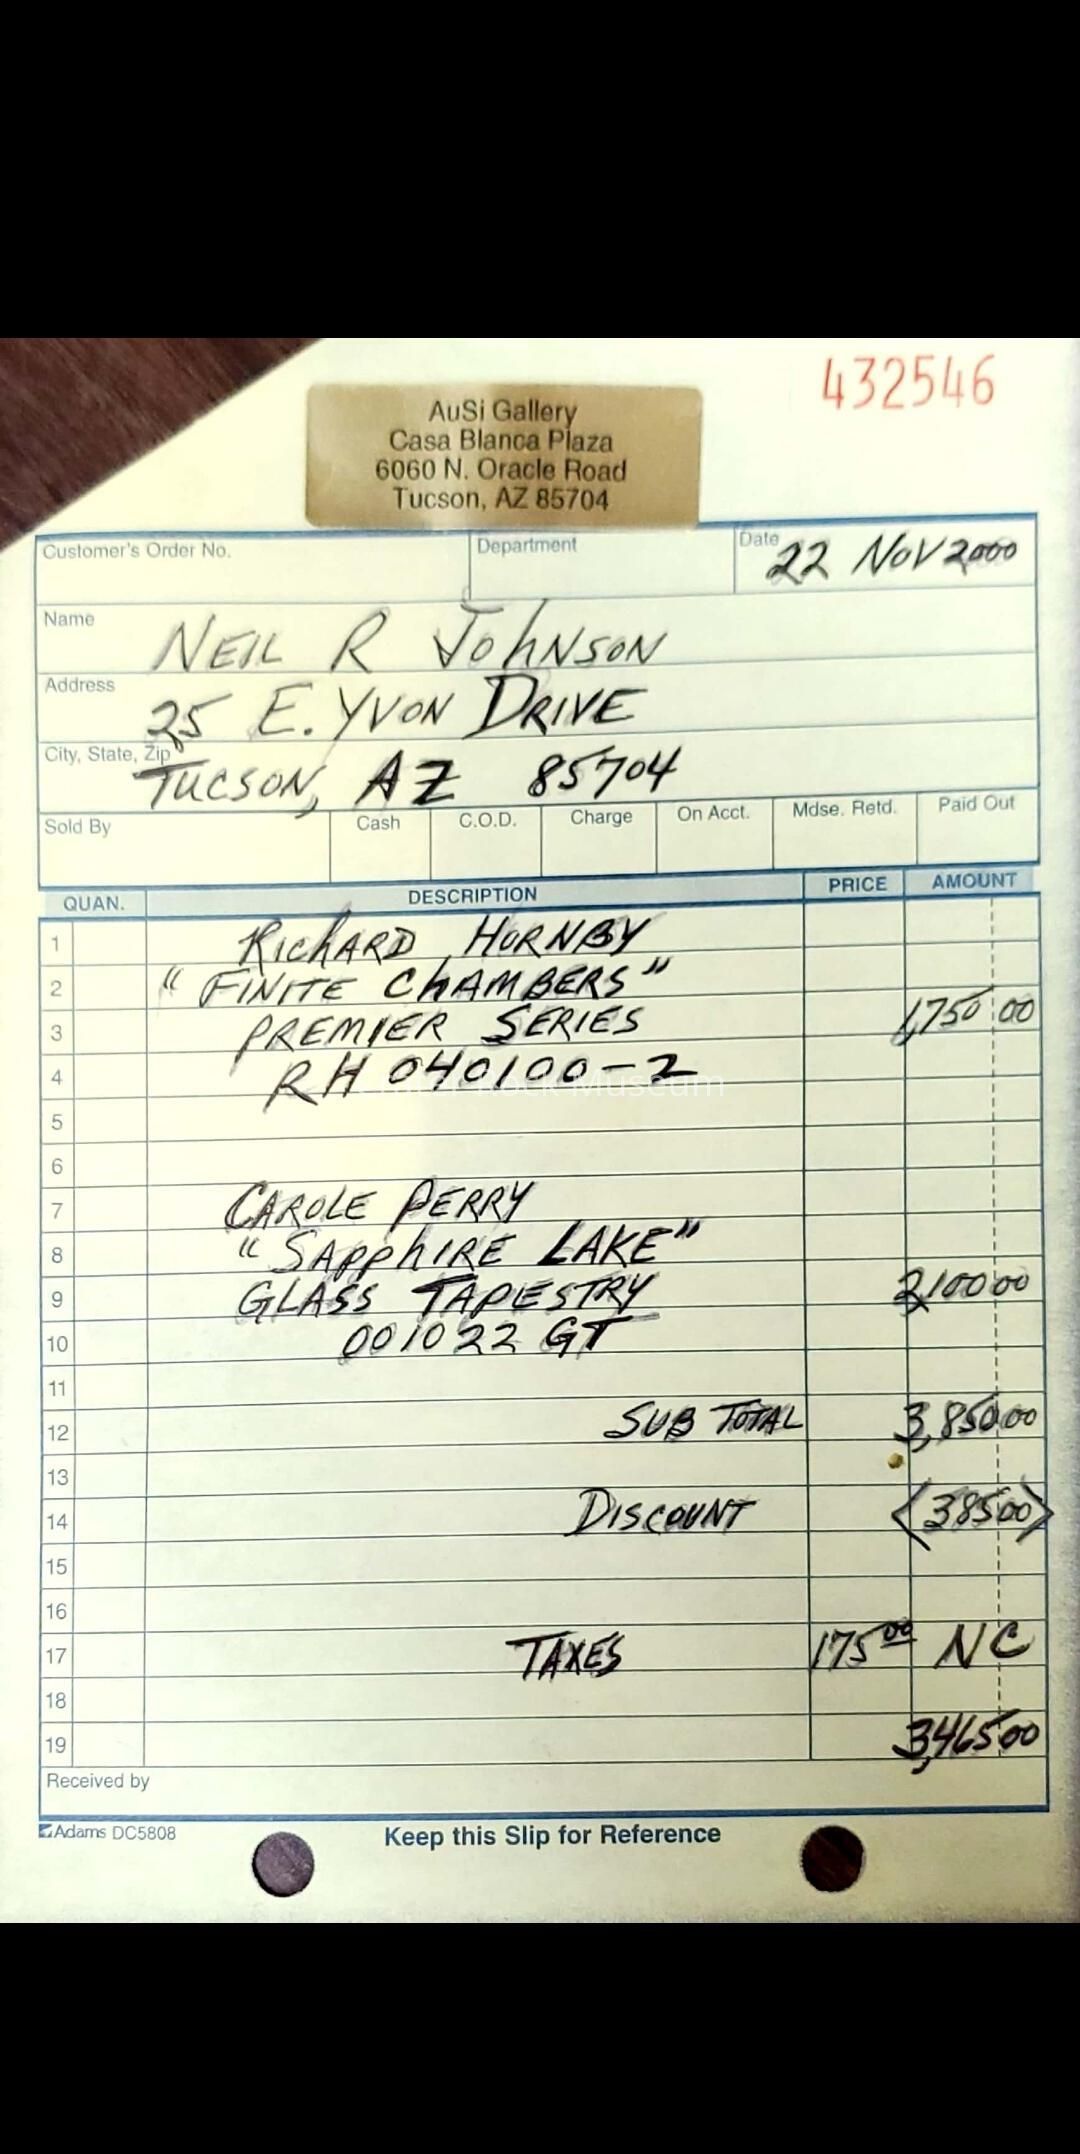 432546
AuSi Gallery
Casa Blanca Plaza
6060 N. Oracle Road
Tucson, AZ 85704
Customer's Order No. Department Date 22 NOV 2000
Name NEIL R JOHNSON
Address 25 E. YVON DRIVE
City, State, Zip TUCSON, AZ 85704
Sold By Cash C.O.D. Charge On Acct. Mdse. Retd. Paid Out
QUAN. DESCRIPTION PRICE AMOUNT
1 RICHARD HORNBY
2 "FINITE CHAMBERS"
3 PREMIER SERIES 1,750 00
4 RH 040100-2
Rock Museum
5
6
7 CAROLE PERRY
8 "SAPPHIRE LAKE"
9 GLASS TAPESTRY 2,100 00
10 001022 GT
11
12 SUB TOTAL 3,850 00
13
14 DISCOUNT <385 00>
15
16
17 TAXES 175 00 NC
18
19 3,465 00
Received by
Adams DC5808 Keep this Slip for Reference